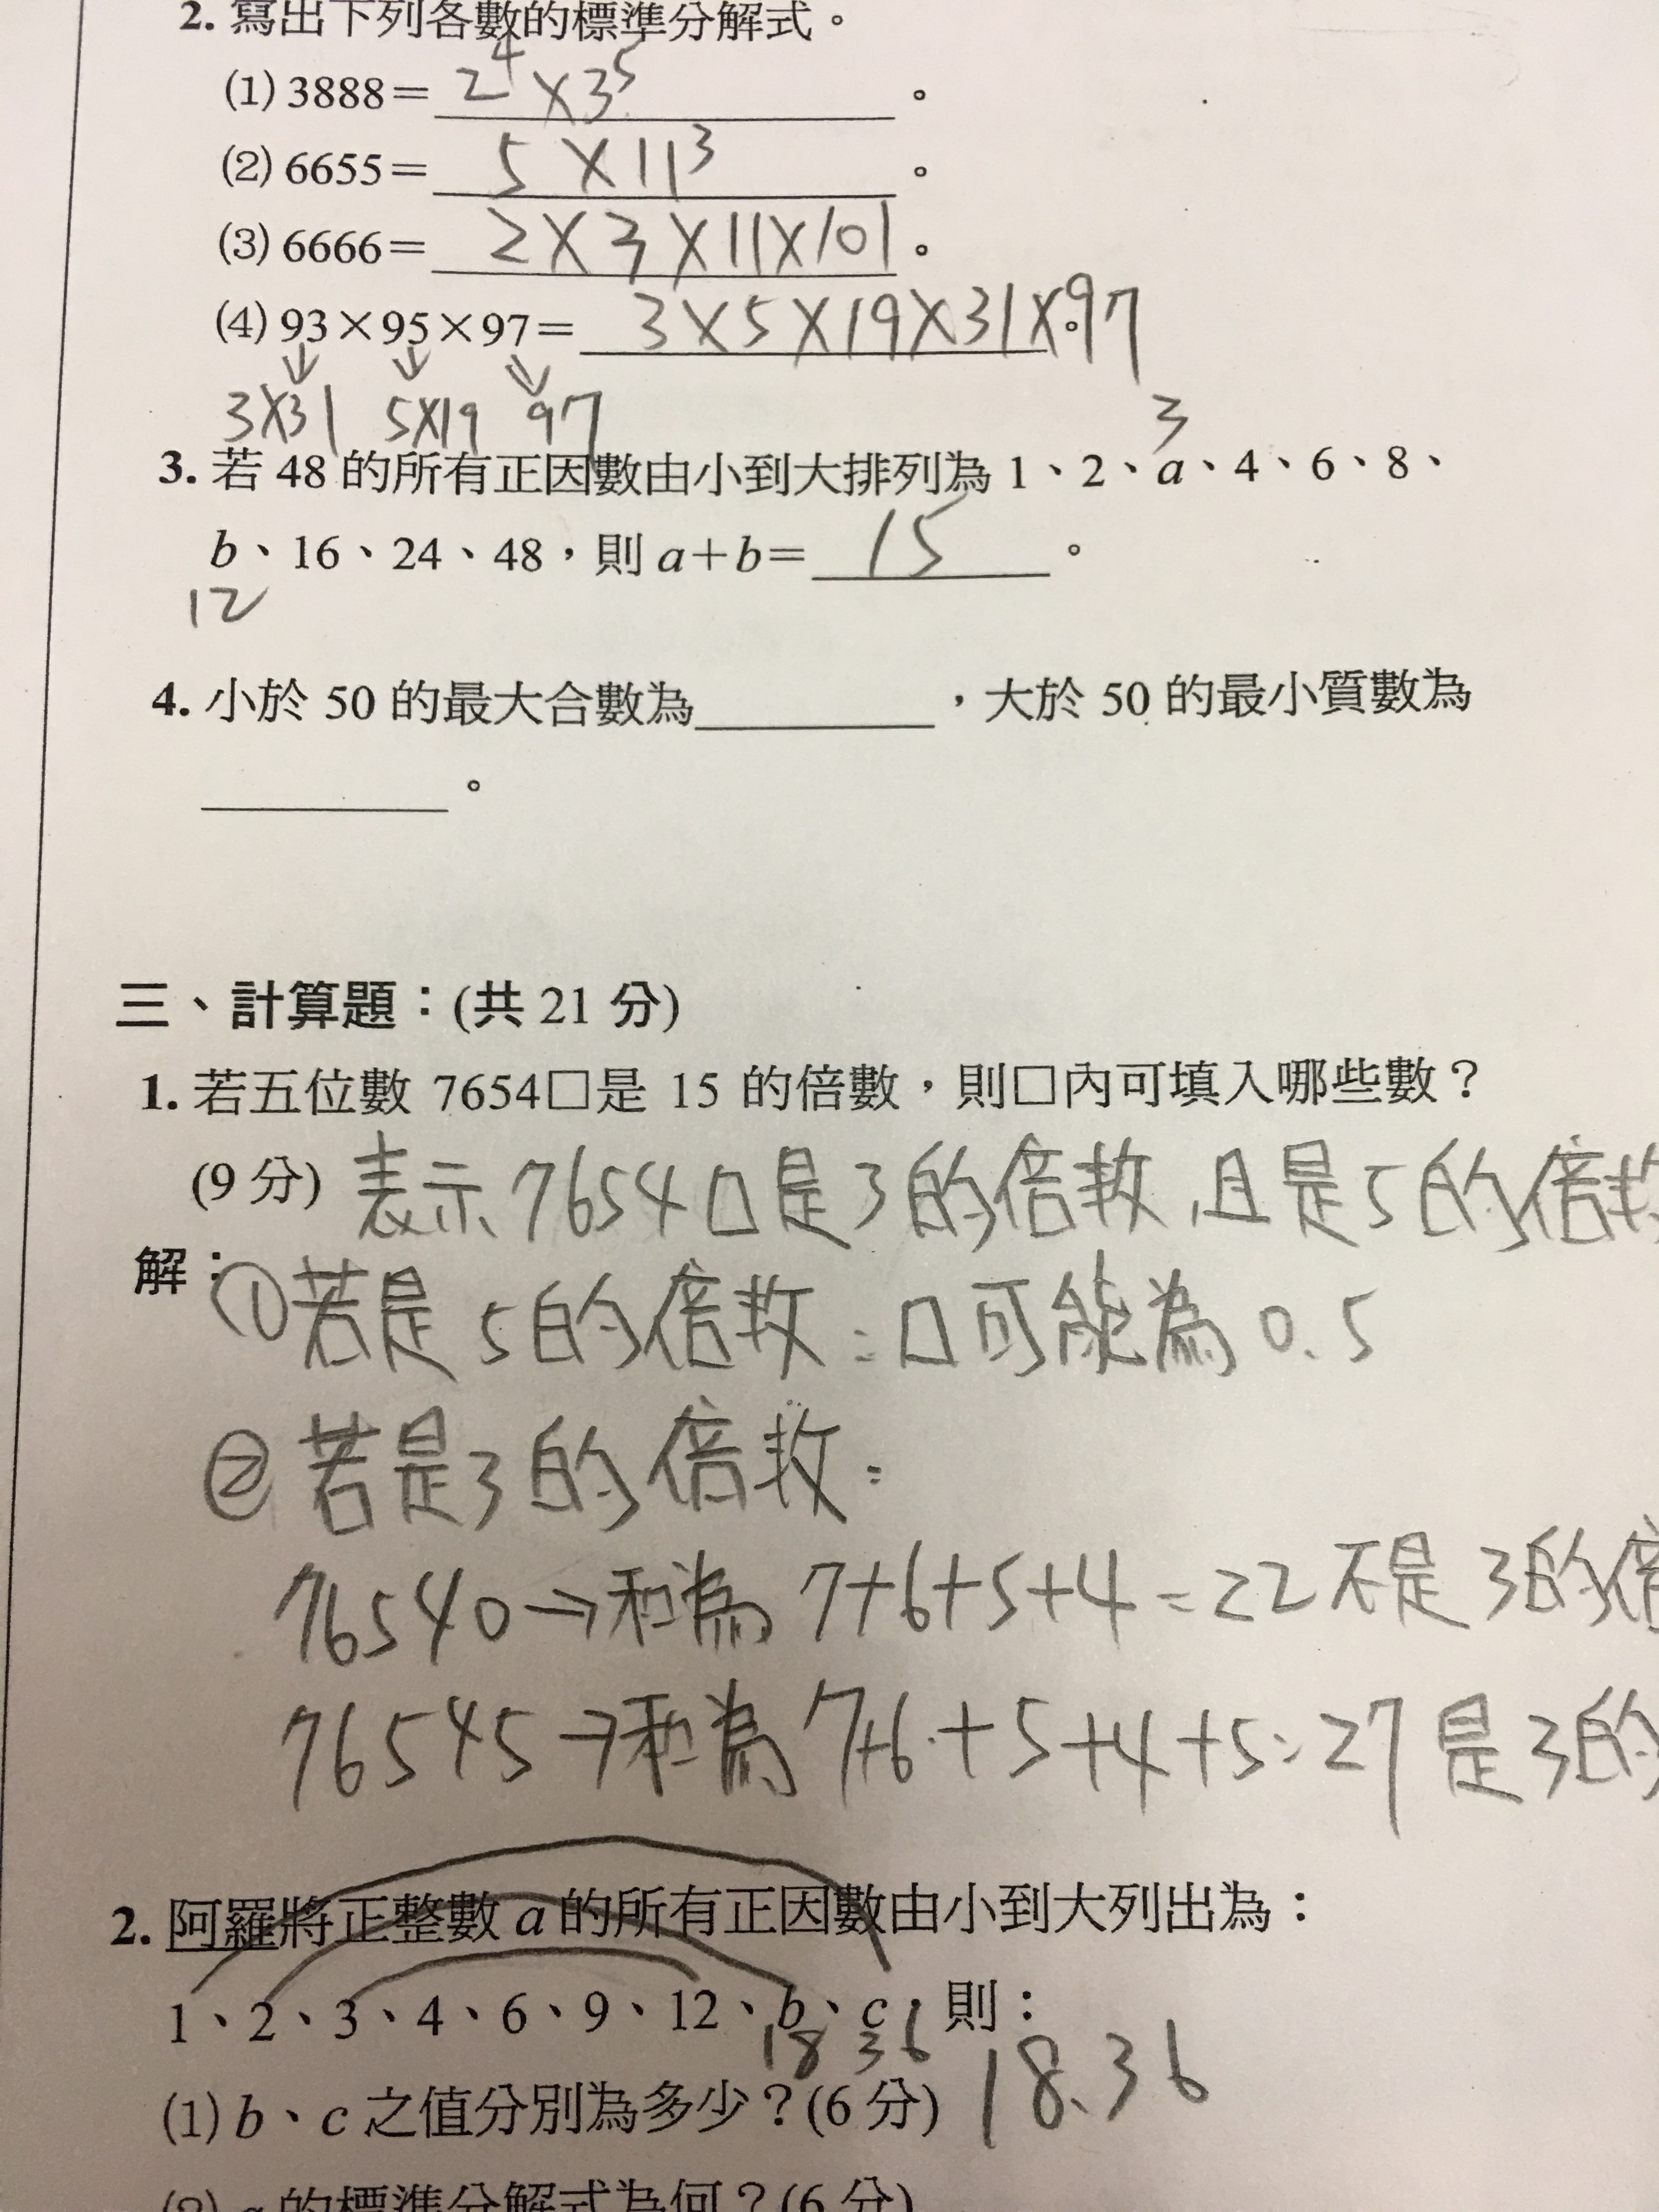 2. 寫出下列各數的標準分解式。
(1) 3888＝2⁴×3⁵。
(2) 6655＝5×11³。
(3) 6666＝2×3×11×101。
(4) 93×95×97＝3×5×19×31×97。
3×31 5×19 97
3
3. 若 48 的所有正因數由小到大排列為 1、2、a、4、6、8、
b、16、24、48，則 a＋b＝15。
12
4. 小於 50 的最大合數為＿＿＿＿，大於 50 的最小質數為
＿＿＿＿。
三、計算題：(共 21 分)
1. 若五位數 7654□是 15 的倍數，則□內可填入哪些數？
(9 分) 表示7654□是3的倍數,且是5的倍數
解：①若是5的倍數：□可能為0.5
②若是3的倍數：
76540→和為7+6+5+4=22不是3的倍
76545→和為7+6+5+4+5=27是3的
2. 阿羅將正整數 a 的所有正因數由小到大列出為：
1、2、3、4、6、9、12、b、c，則：
18 36
(1) b、c 之值分別為多少？(6 分) 18、36
(2) a 的標準分解式為何？(6 分)